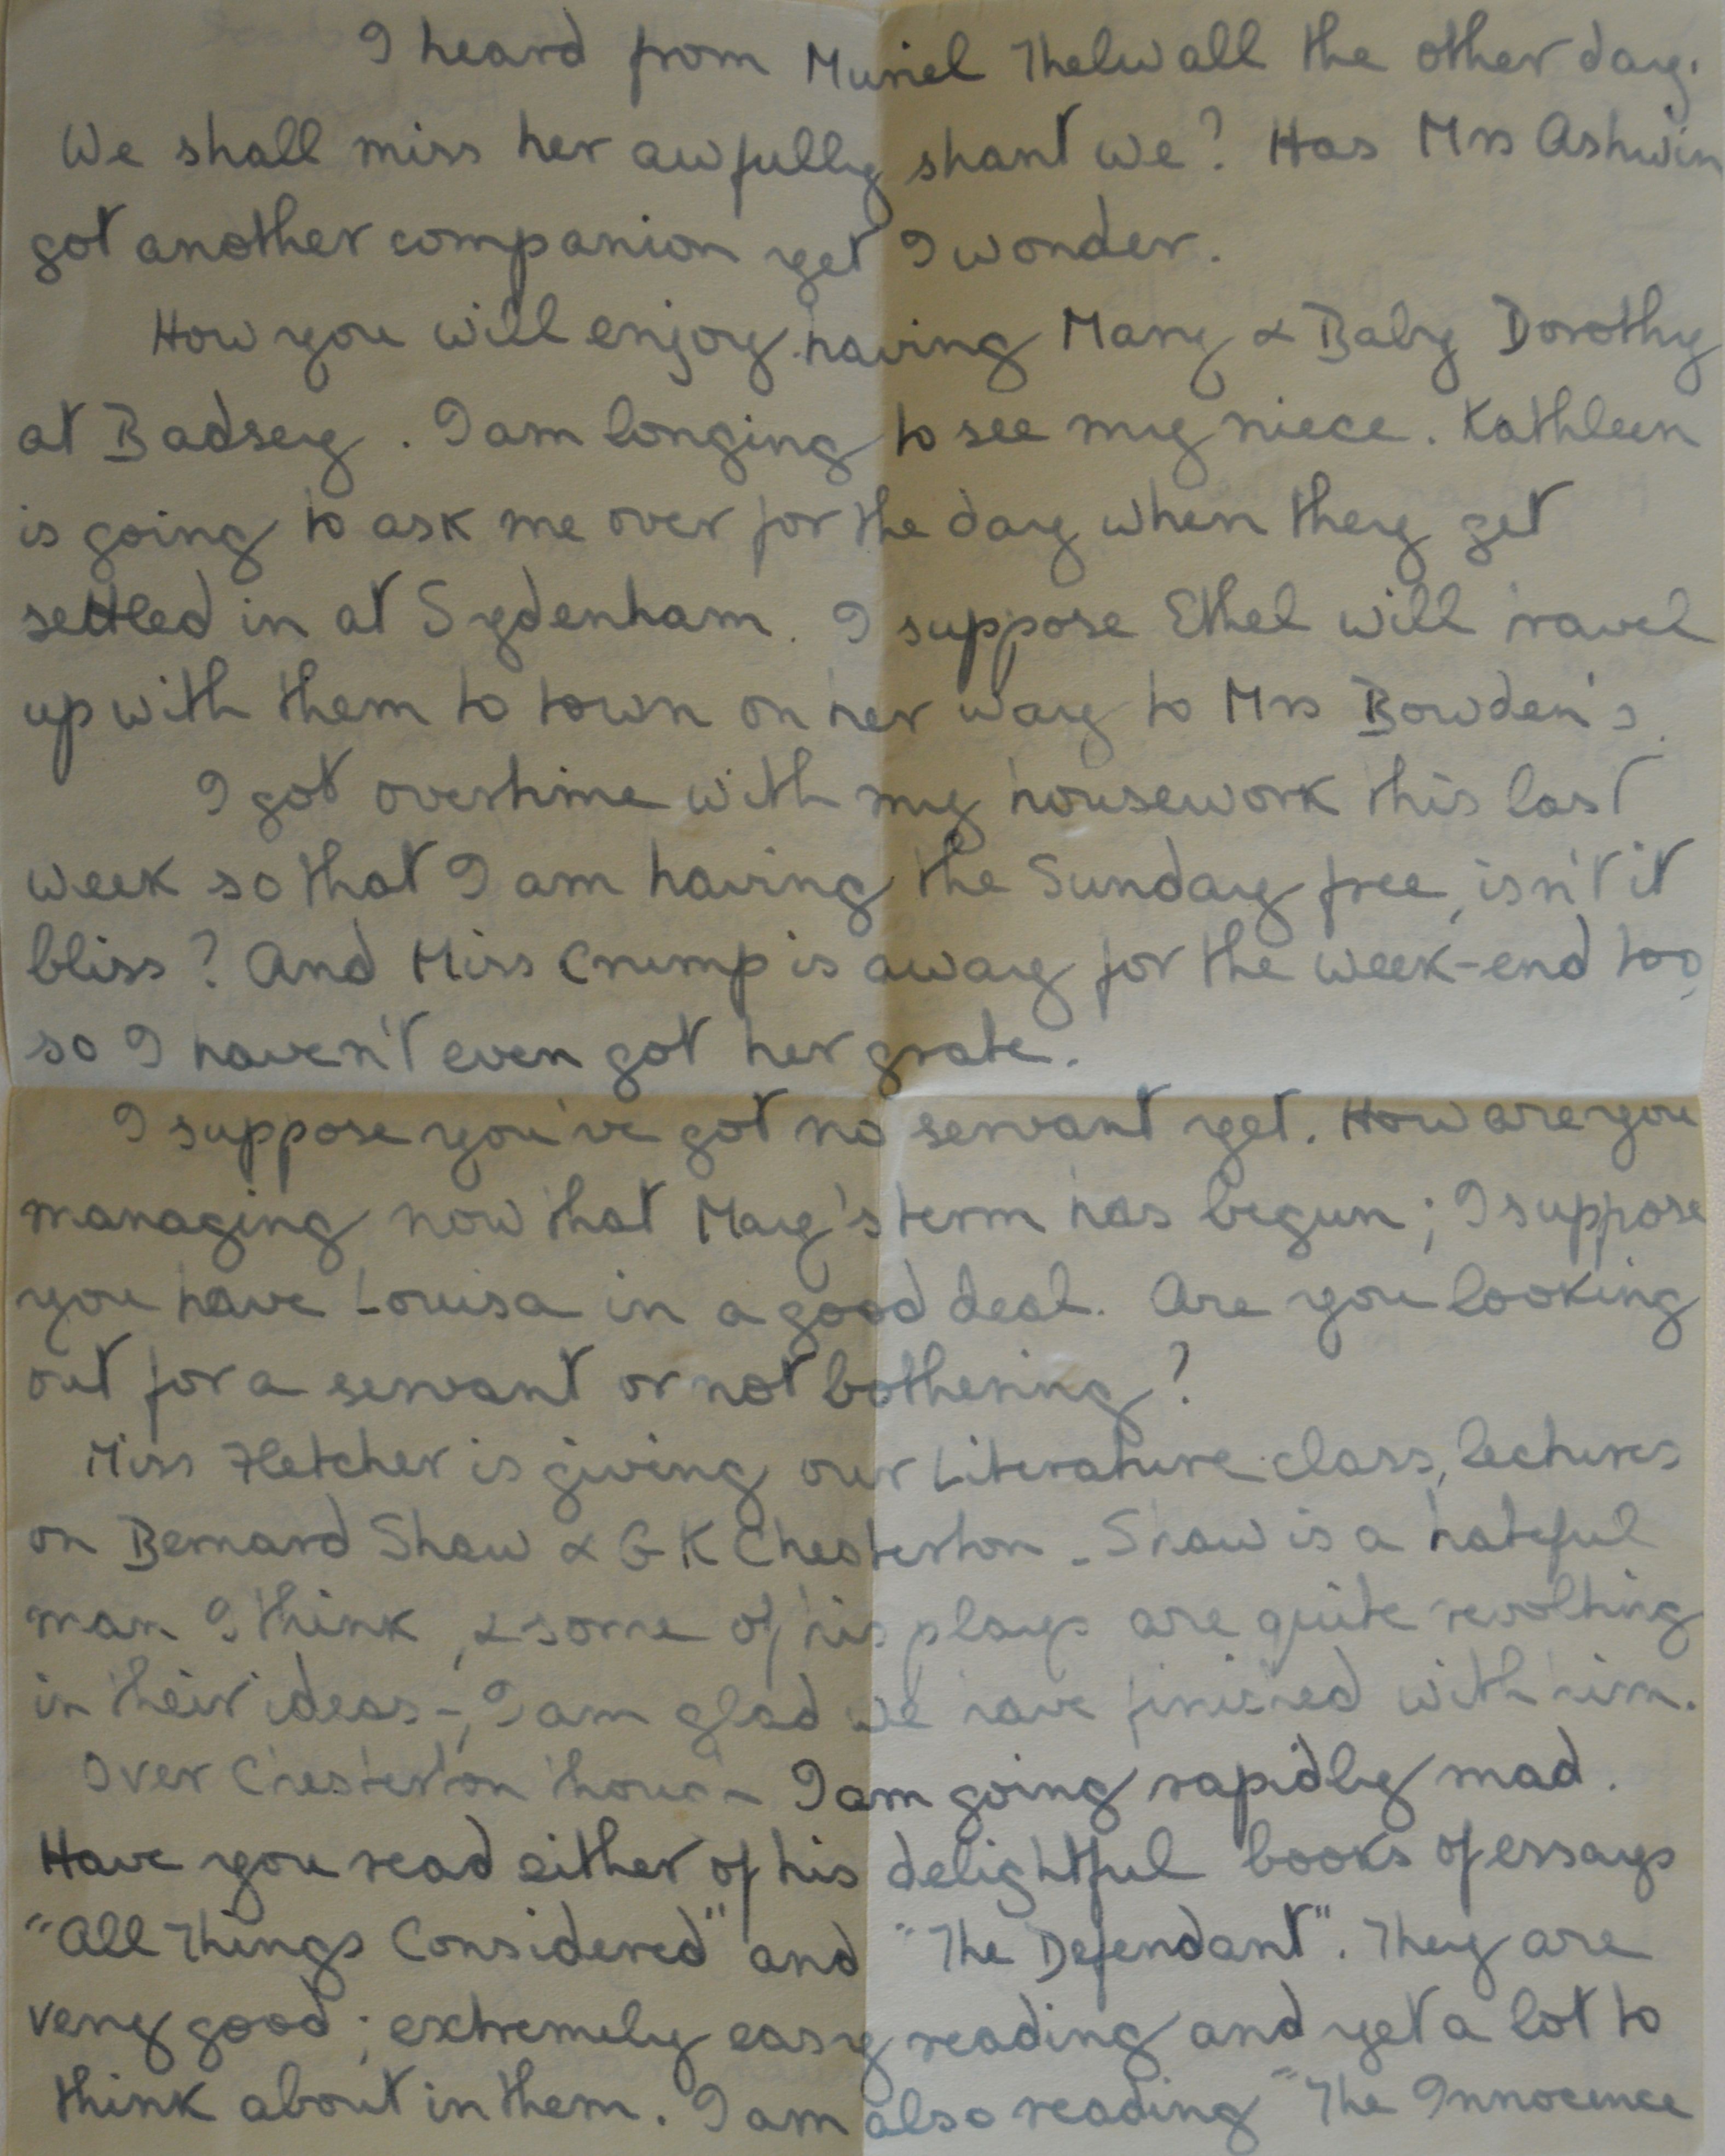 I heard from Muriel Thelwall the other day.
We shall miss her awfully shant we? Has Mrs Ashwin
got another companion yet I wonder.
How you will enjoy having Mary & Baby Dorothy
at Badsey. I am longing to see my niece. Kathleen
is going to ask me over for the day when they get
settled in at Sydenham. I suppose Ethel will travel
up with them to town on her way to Mrs Bowden's.
I got overtime with my housework this last
week so that I am having the Sunday free, isn't it
bliss? And Miss Crump is away for the week-end too,
so I haven't even got her grate.
I suppose you've got no servant yet. How are you
managing now that May's term has begun; I suppose
you have Louisa in a good deal. Are you looking
out for a servant or not bothering?
Miss Fletcher is giving our Literature class, lectures
on Bernard Shaw & G K Chesterton. Shaw is a hateful
man I think, & some of his plays are quite revolting
in their ideas -, I am glad we have finished with him.
Over Chesterton though I am going rapidly mad.
Have you read either of his delightful books of essays
"All Things Considered" and "The Defendant". They are
very good; extremely easy reading and yet a lot to
think about in them. I am also reading "The Innocence